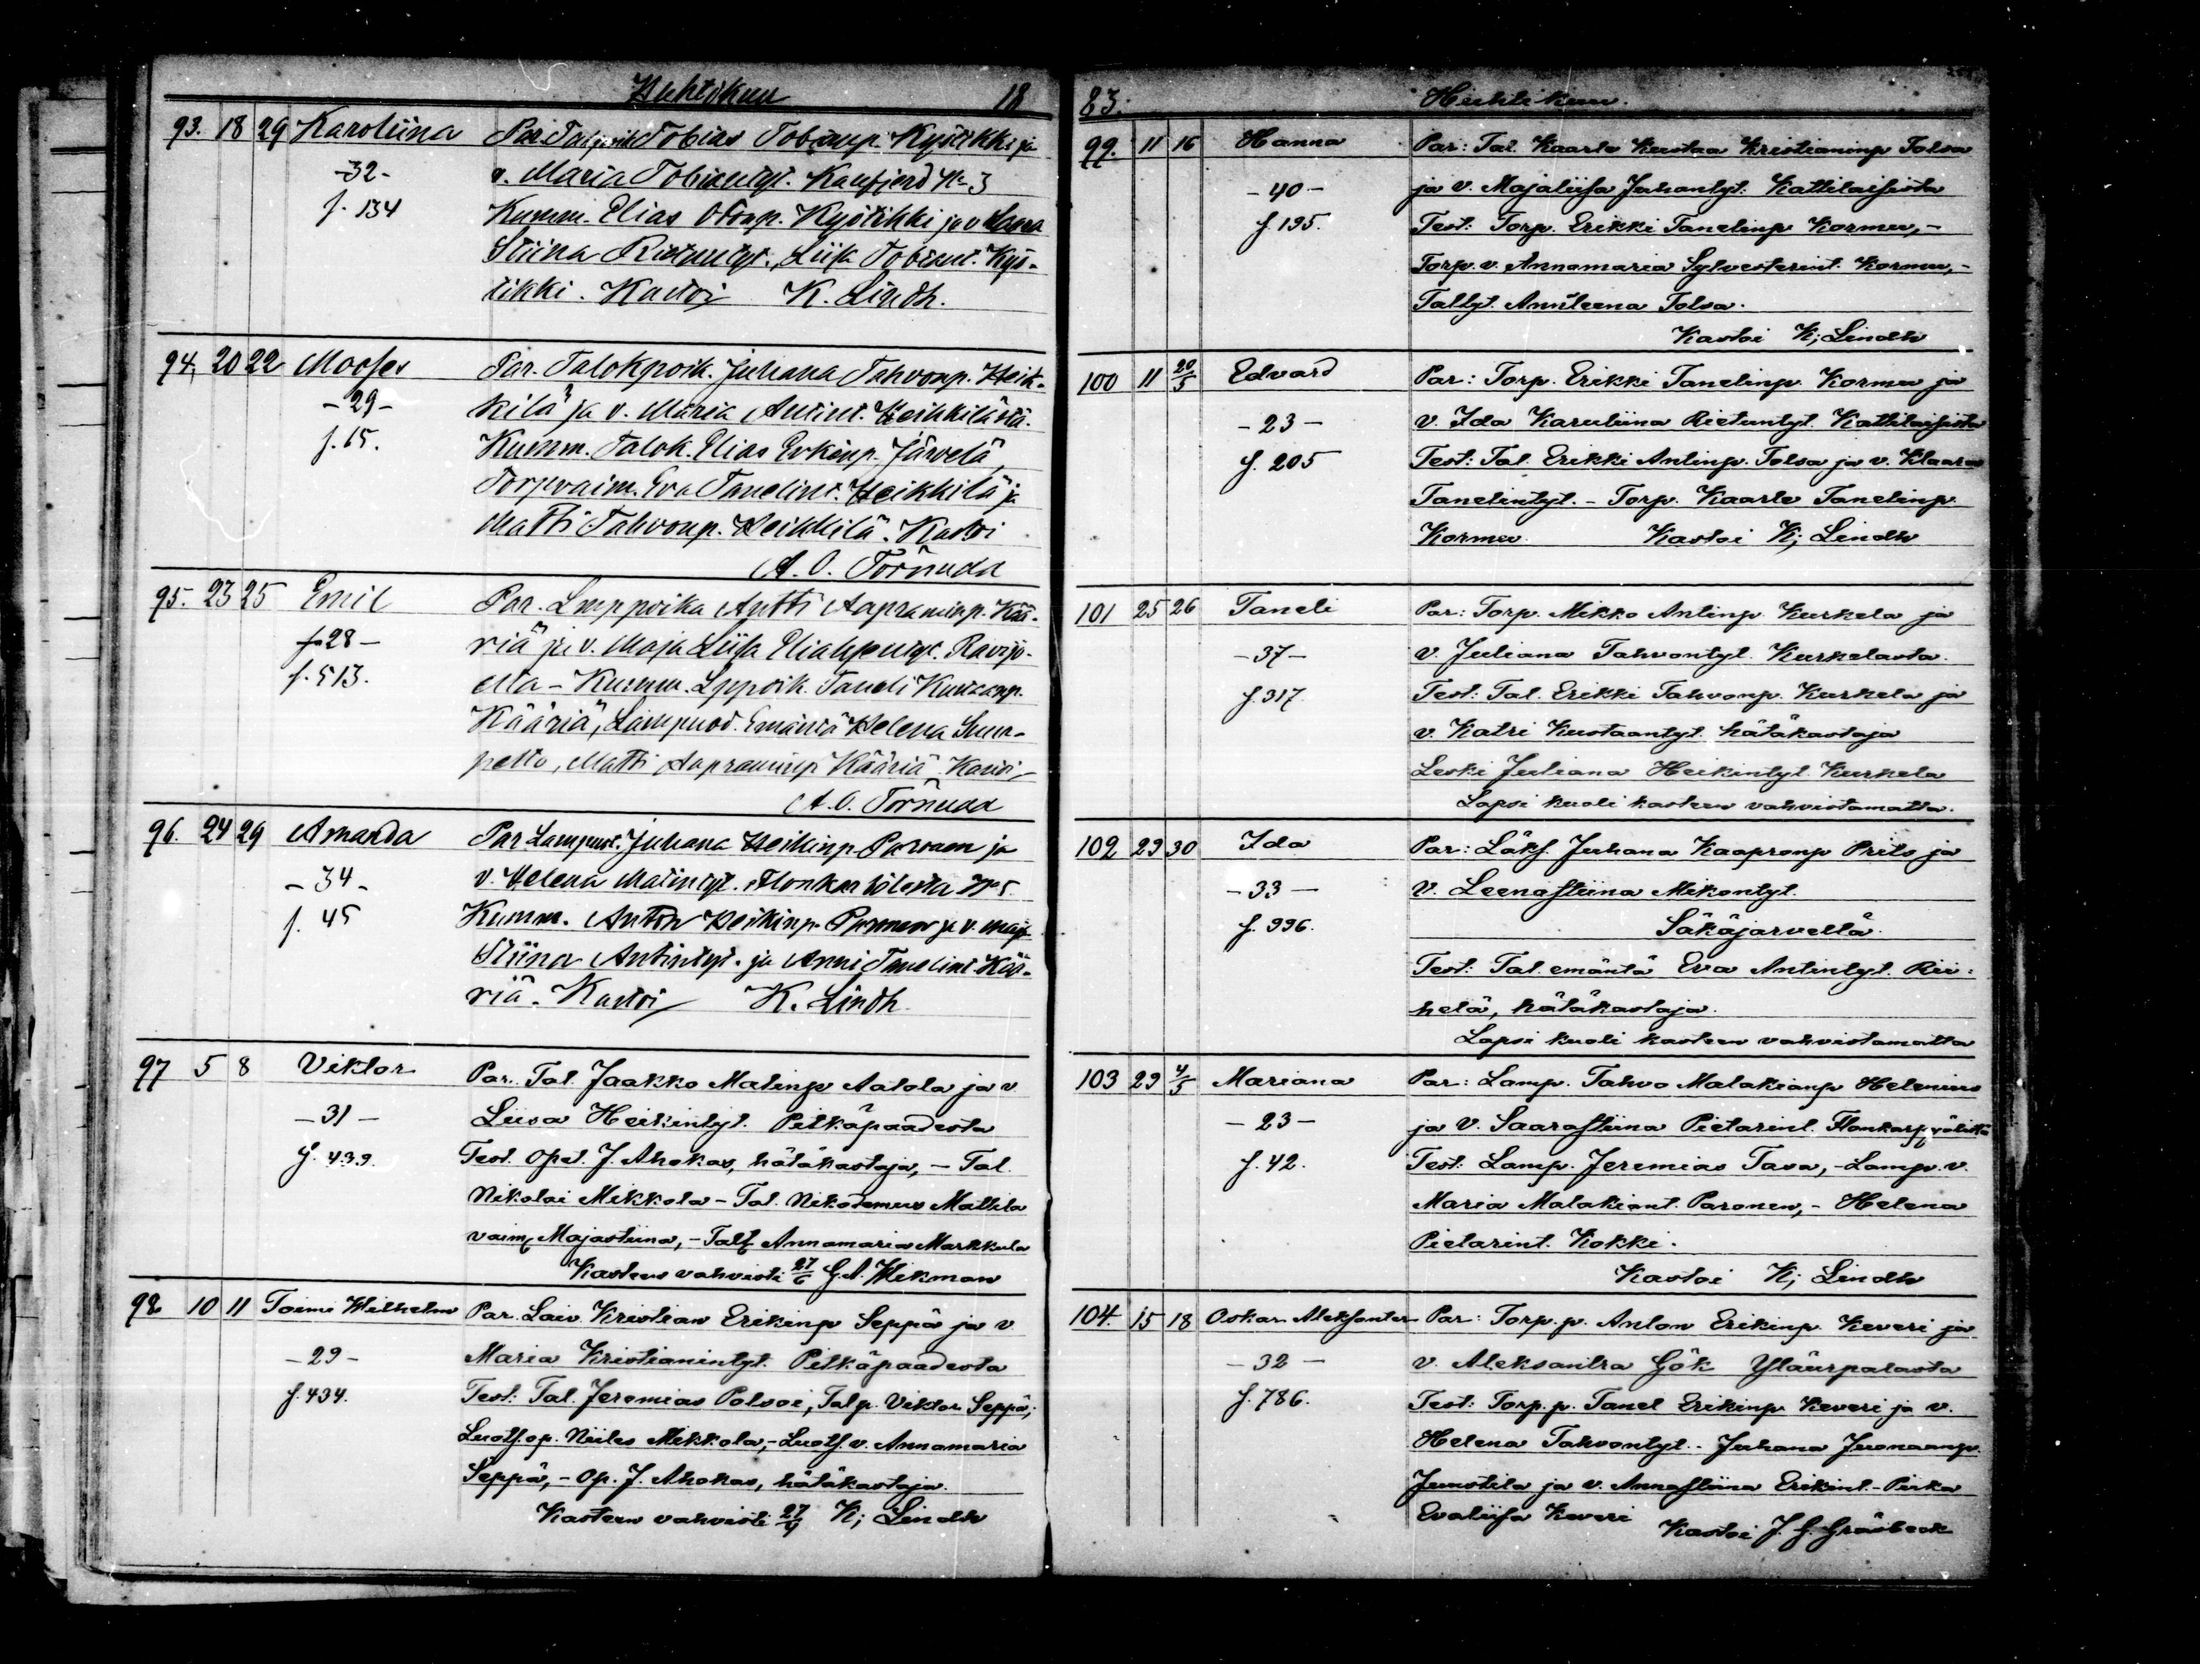 Huhtikuu 18
93. 18 29 Karoliina Par. Talonpoik Tobias Tobianp. Kyötikki ja
-32- v. Maria Tobiantyt. Kanfjerd No 3
f. 134 Kumm. Elias Ottonp. Kyötikki ja v.
Stiina Rietuntyt., Liisa Tobiant. Kyö-
tikki. Kastoi K. Lindh.
94. 20 22 Mooses Par. Talokpoik. Juhana Tahvonp. Heik-
-29- kilä ja v. Maria Antint. Heikkilästä.
f. 15. Kumm. Talok. Elias Erkinp. Järvelä,
Torpvaim. Eva Tanelint. Heikkilä ja
Matti Tahvonp. Heikkilä. Kastoi
A. O. Törnudd
95. 23 25 Emil Par. Lmppoika Antti Aapraminp. Kää-
28 - riä ja v. Maja Liisa Eliaksentyt. Ravijo-
f. 513. elta - Kumm. Lppoik. Taneli Kustaanp.
Kääriä, Lampuod. Emäntä Helena Suur-
pelto, Matti Aapraminp Kääriä. Kastoi
A. O. Törnudd
96. 24 29 Amanda Par Lampuot. Juhana Heikinp. Paronen ja
- 34 - v. Helena Matintyt. No 5.
f. 45 Kumm. Anton Heikinp. Paronen ja v. Maja
Stiina Antintyt. ja Anni Tanelint. Kää-
riä. Kastoi K. Lindh.
97 5 8 Viktor Par. Tal. Jaakko Matinp Aalola ja v
- 31 - Liisa Heikintyt. Pitkäpaadesta
f. 439. Test. Opet. J. Ahokas, hätäkastaja, - Tal.
Nikolai Mikkola - Tal. Nikodemus Mattila
vaim Majastiina, - Talt Annamaria Markkula
Kasteen vahvisti 27/6 G. A. Wikman
98 10 11 Toimi Wilhelm Par. Laiv. Kristian Erikinp Seppä ja v.
- 29 - Maria Kristianintyt. Pitkäpaadesta
f. 434. Test: Tal. Jeremias Polsoi, Tal p. Viktor Seppä,
Luots. op. Niiles Mikkola, - Luots. v. Annamaria
Seppä, - Op. J. Ahokas, hätäkastaja.
Kasteen vahvisti 27/4 K; Lindh
83. Huhtikuu.
99. 11 16 Hanna Par: Tal. Kaarle Kustaa Kristianinp Tolsa
- 40 - ja v. Majaliisa Juhantyt: Kattilaisista
f. 195. Test: Torp. Erikki Tanelinp Kormu, -
Torp. v. Annamaria Sylvesterint. Kormu, -
Taltyt. Annileena Tolsa.
Kastoi K; Lindh
100 11 20/5 Edvard Par: Torp. Erikki Tanelinp. Kormu ja
- 23 - v. Ida Karuliina Rietuntyt. Kattilaisista
f. 205 Test: Tal. Erikki Antinp. Tolsa ja v. Klaara
Tanelintyt. - Torp. Kaarle Tanelinp.
Kormu. Kastoi K; Lindh
101 25 26 Taneli Par: Torp. Mikko Antinp Kurkela ja
- 37 - v. Juliana Tahvontyt. Kurkelasta.
f. 317. Test: Tal. Erikki Tahvonp. Kurkela ja
v. Katri Kustaantyt. hätäkastaja
Leski Juliana Heikintyt. Kurkela
Lapsi kuoli kasteen vahvistamatta.
102 29 30 Ida Par: Läks. Juhana Kaapronp Prilo ja
- 33 - v. Leenastiina Mikontyt.
f. 996. Säkäjärveltä.
Test: Tal. emäntä Eva Antintyt. Rii-
helä, hätäkastaja.
Lapsi kuoli kasteen vahvistamatta
103 29 4/5 Mariana Par: Lamp. Tahvo Malakianp Helenius
- 23 - ja v. Saarastiina Pietarint.
f. 42. Test: Lamp. Jeremias Tasa, - Lamp. v.
Maria Malakiant. Paronen, - Helena
Pietarint. Kokki.
Kastoi K; Lindh
104. 15 18 Oskar Aleksanter Par: Torp. p. Anton Erikinp. Keveri ja
- 32 - v. Aleksantra Gök Yläurpalasta
f. 786. Test: Torp. p. Tanel Erikinp Keveri ja v.
Helena Tahvontyt. - Juhana Juonaanp.
Junstila ja v. Annastiina Erikint. - Piika
Evaliisa Keveri Kastoi J. G. Gråsbeck